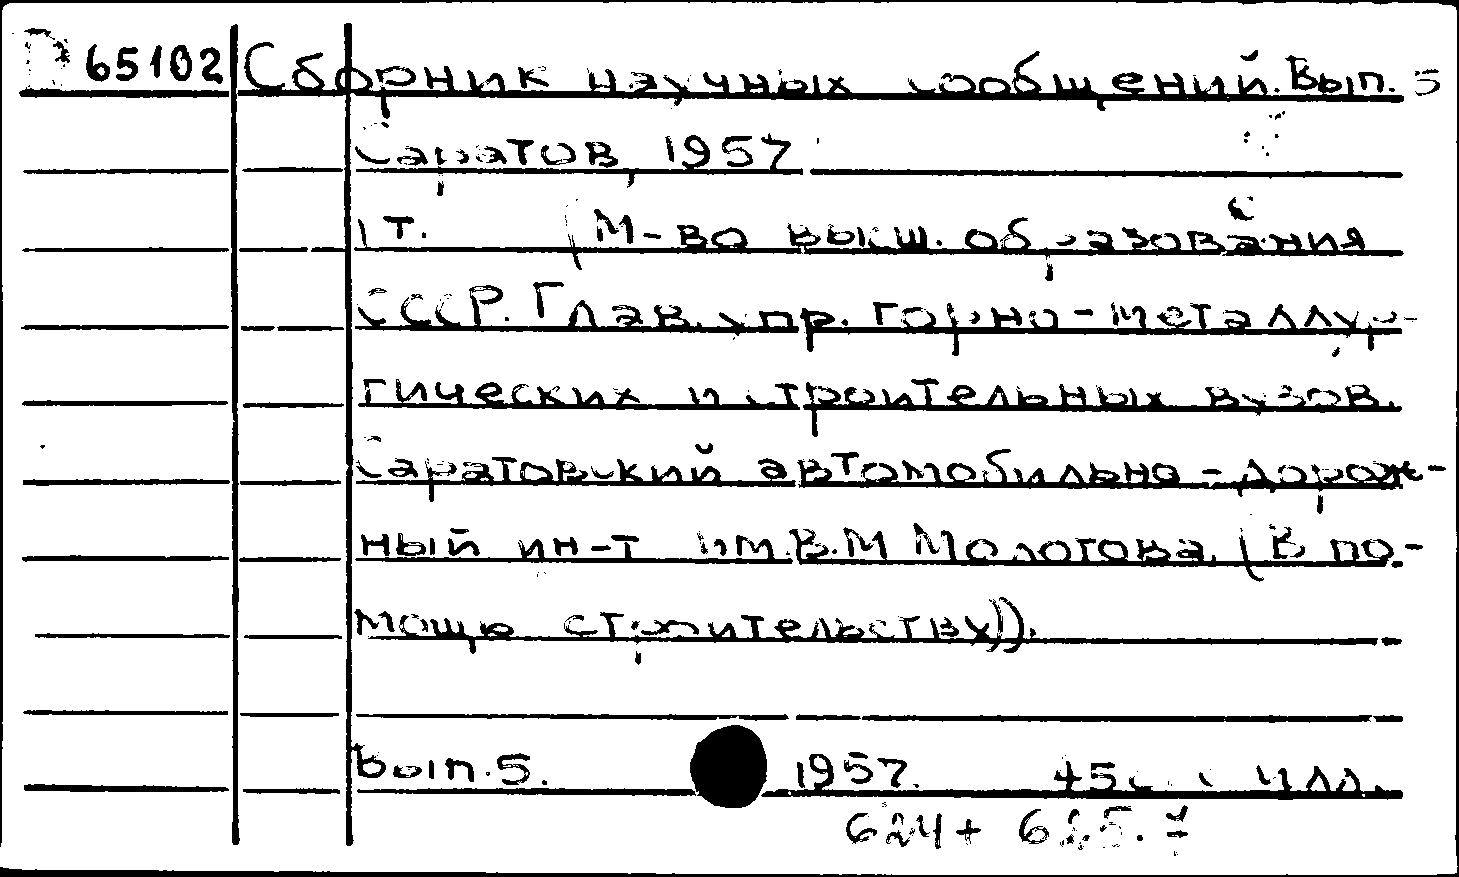 D 65102 Сборник научных сообщений. Вып. 5
Саратов, 1957
1 т. (М-во высш. образования
СССР. Глав. упр. горно-металлур-
гических и строительных вузов.
Саратовский автомобильно-дорож-
ный ин-т им. В.М Молотова. (В по-
мощь строительству)).
Вып. 5. 1957. 45 с. с илл.
624 + 625.7